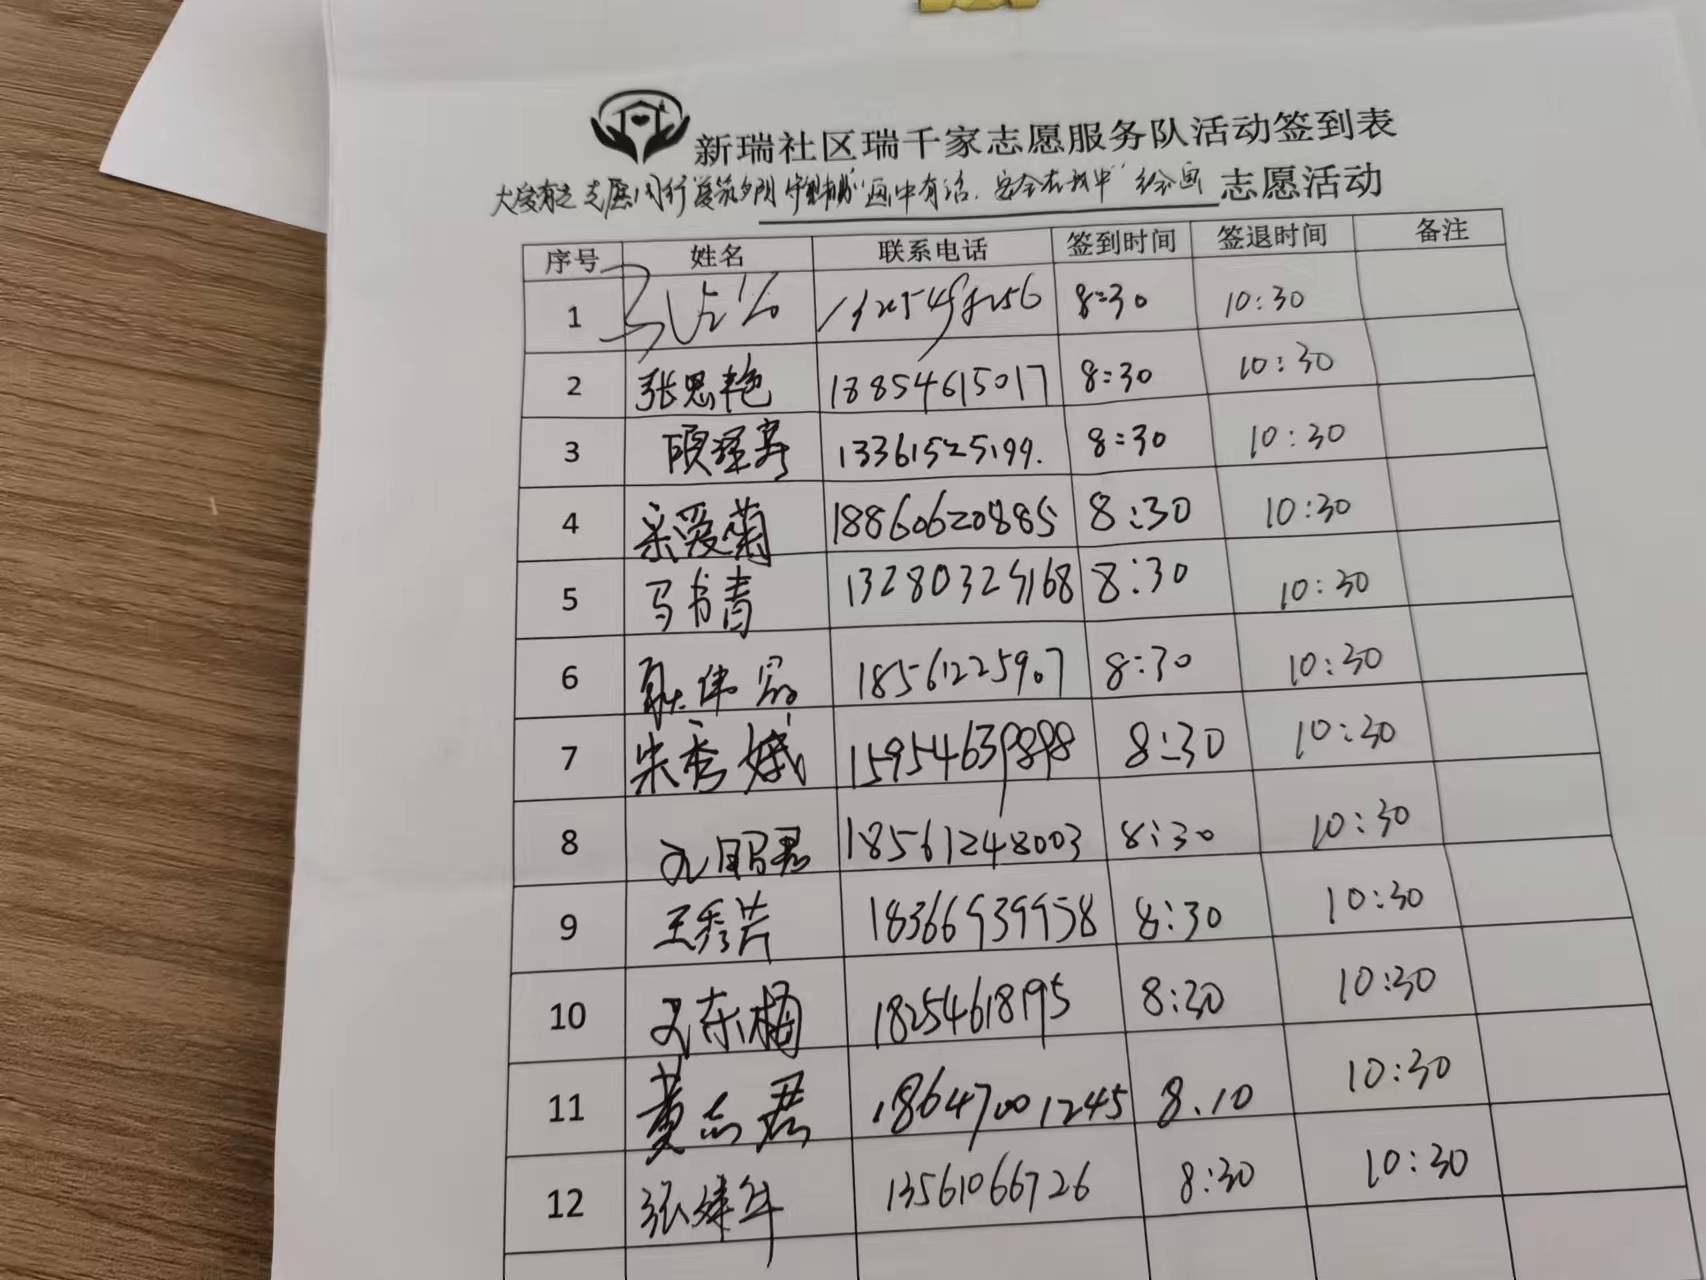 新瑞社区瑞千家志愿服务队活动签到表
大爱有 志愿同行 "画中有话，安全在我中"绘画 志愿活动
序号 姓名 联系电话 签到时间 签退时间 备注
1 8:30 10:30
2 张思艳 18854615017 8:30 10:30
3 13361525199. 8:30 10:30
4 宋爱菊 18860620885 8:30 10:30
5 马书青 13280325168 8:30 10:30
6 耿伟 18561225907 8:30 10:30
7 朱秀娥 15954639898 8:30 10:30
8 18561248003 8:30 10:30
9 王秀芳 18366939958 8:30 10:30
10 东梅 18254618195 8:30 10:30
11 黄志君 18647001245 8.10 10:30
12 张建年 13561066726 8:30 10:30